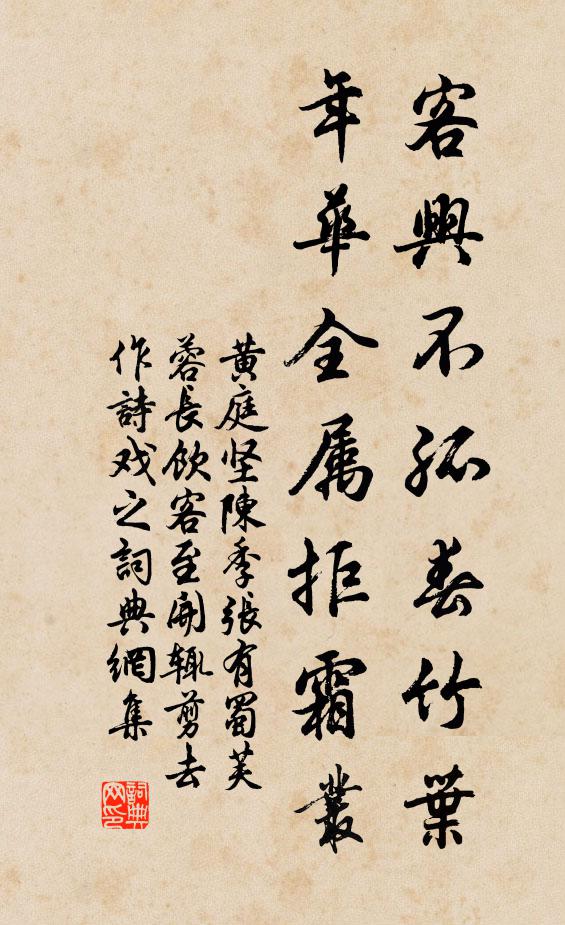 客興不孤春竹葉
年華全属拒霜叢
黄庭坚陳季張有蜀芙
蓉長飲客至開輙剪去
作詩戏之詞典網集
詞典网印